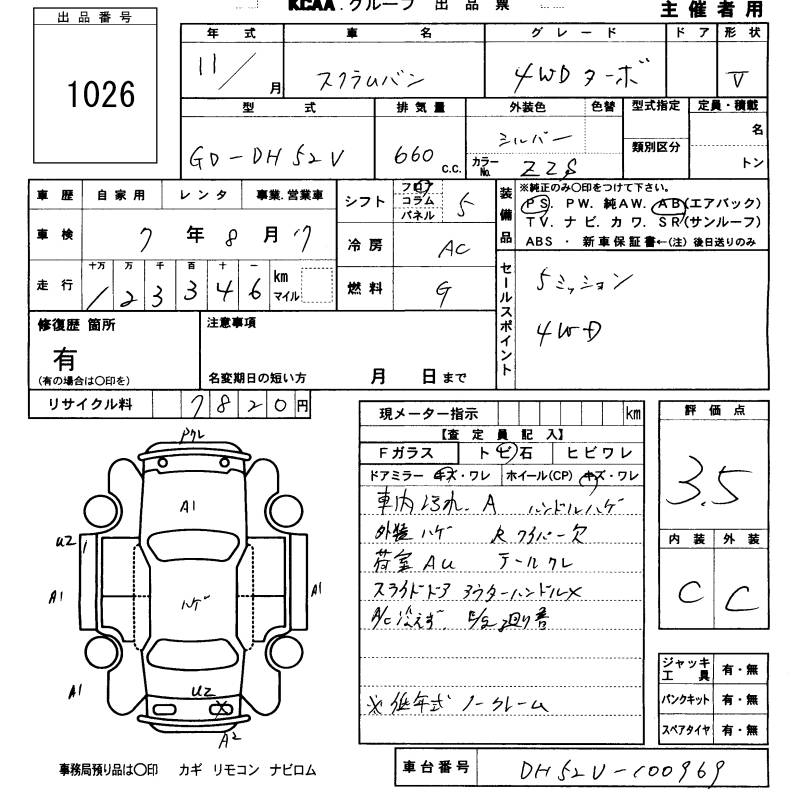 KCAA.グループ 出品票
主催者用
出品番号
1026
年式 車名 グレード ドア 形状
11/ 月 スクラムバン 4WD ターボ V
型式 排気量 外装色 色替 型式指定 定員・積載
GD-DH52V 660 c.c. シルバー 類別区分 名
カラーNo. Z2S トン
車歴 自家用 レンタ 事業.営業車
車検 7年8月17
走行 十万 万 千 百 十 一 km マイル
1 2 3 3 4 6
シフト フロア コラム パネル 5
冷房 AC
燃料 G
装備品 ※純正のみ〇印をつけて下さい。
PS. PW. 純AW. AB(エアバック)
TV. ナビ. カワ. SR(サンルーフ)
ABS ・ 新車保証書←(注) 後日送りのみ
セールスポイント
5ミッション
4WD
修復歴 箇所
有
(有の場合は〇印を)
注意事項
名変期日の短い方 月 日まで
リサイクル料 7820円
現メーター指示 km
【査定員記入】
Fガラス トビ石 ヒビワレ
ドアミラー キズ・ワレ ホイール(CP) キズ・ワレ
車内よごれ. A ハンドルハゲ
外装ハゲ R ワイパー欠
荷室 AU テールワレ
スライドドア アウターハンドル×
A/C冷えず.
※低年式 ノークレーム
評価点
3.5
内装 外装
C C
ジャッキ工具 有・無
パンクキット 有・無
スペアタイヤ 有・無
A1
U2
A1
A1
ハゲ
A1
U2
A2
事務局預り品は〇印 カギ リモコン ナビロム
車台番号 DH52V-100969